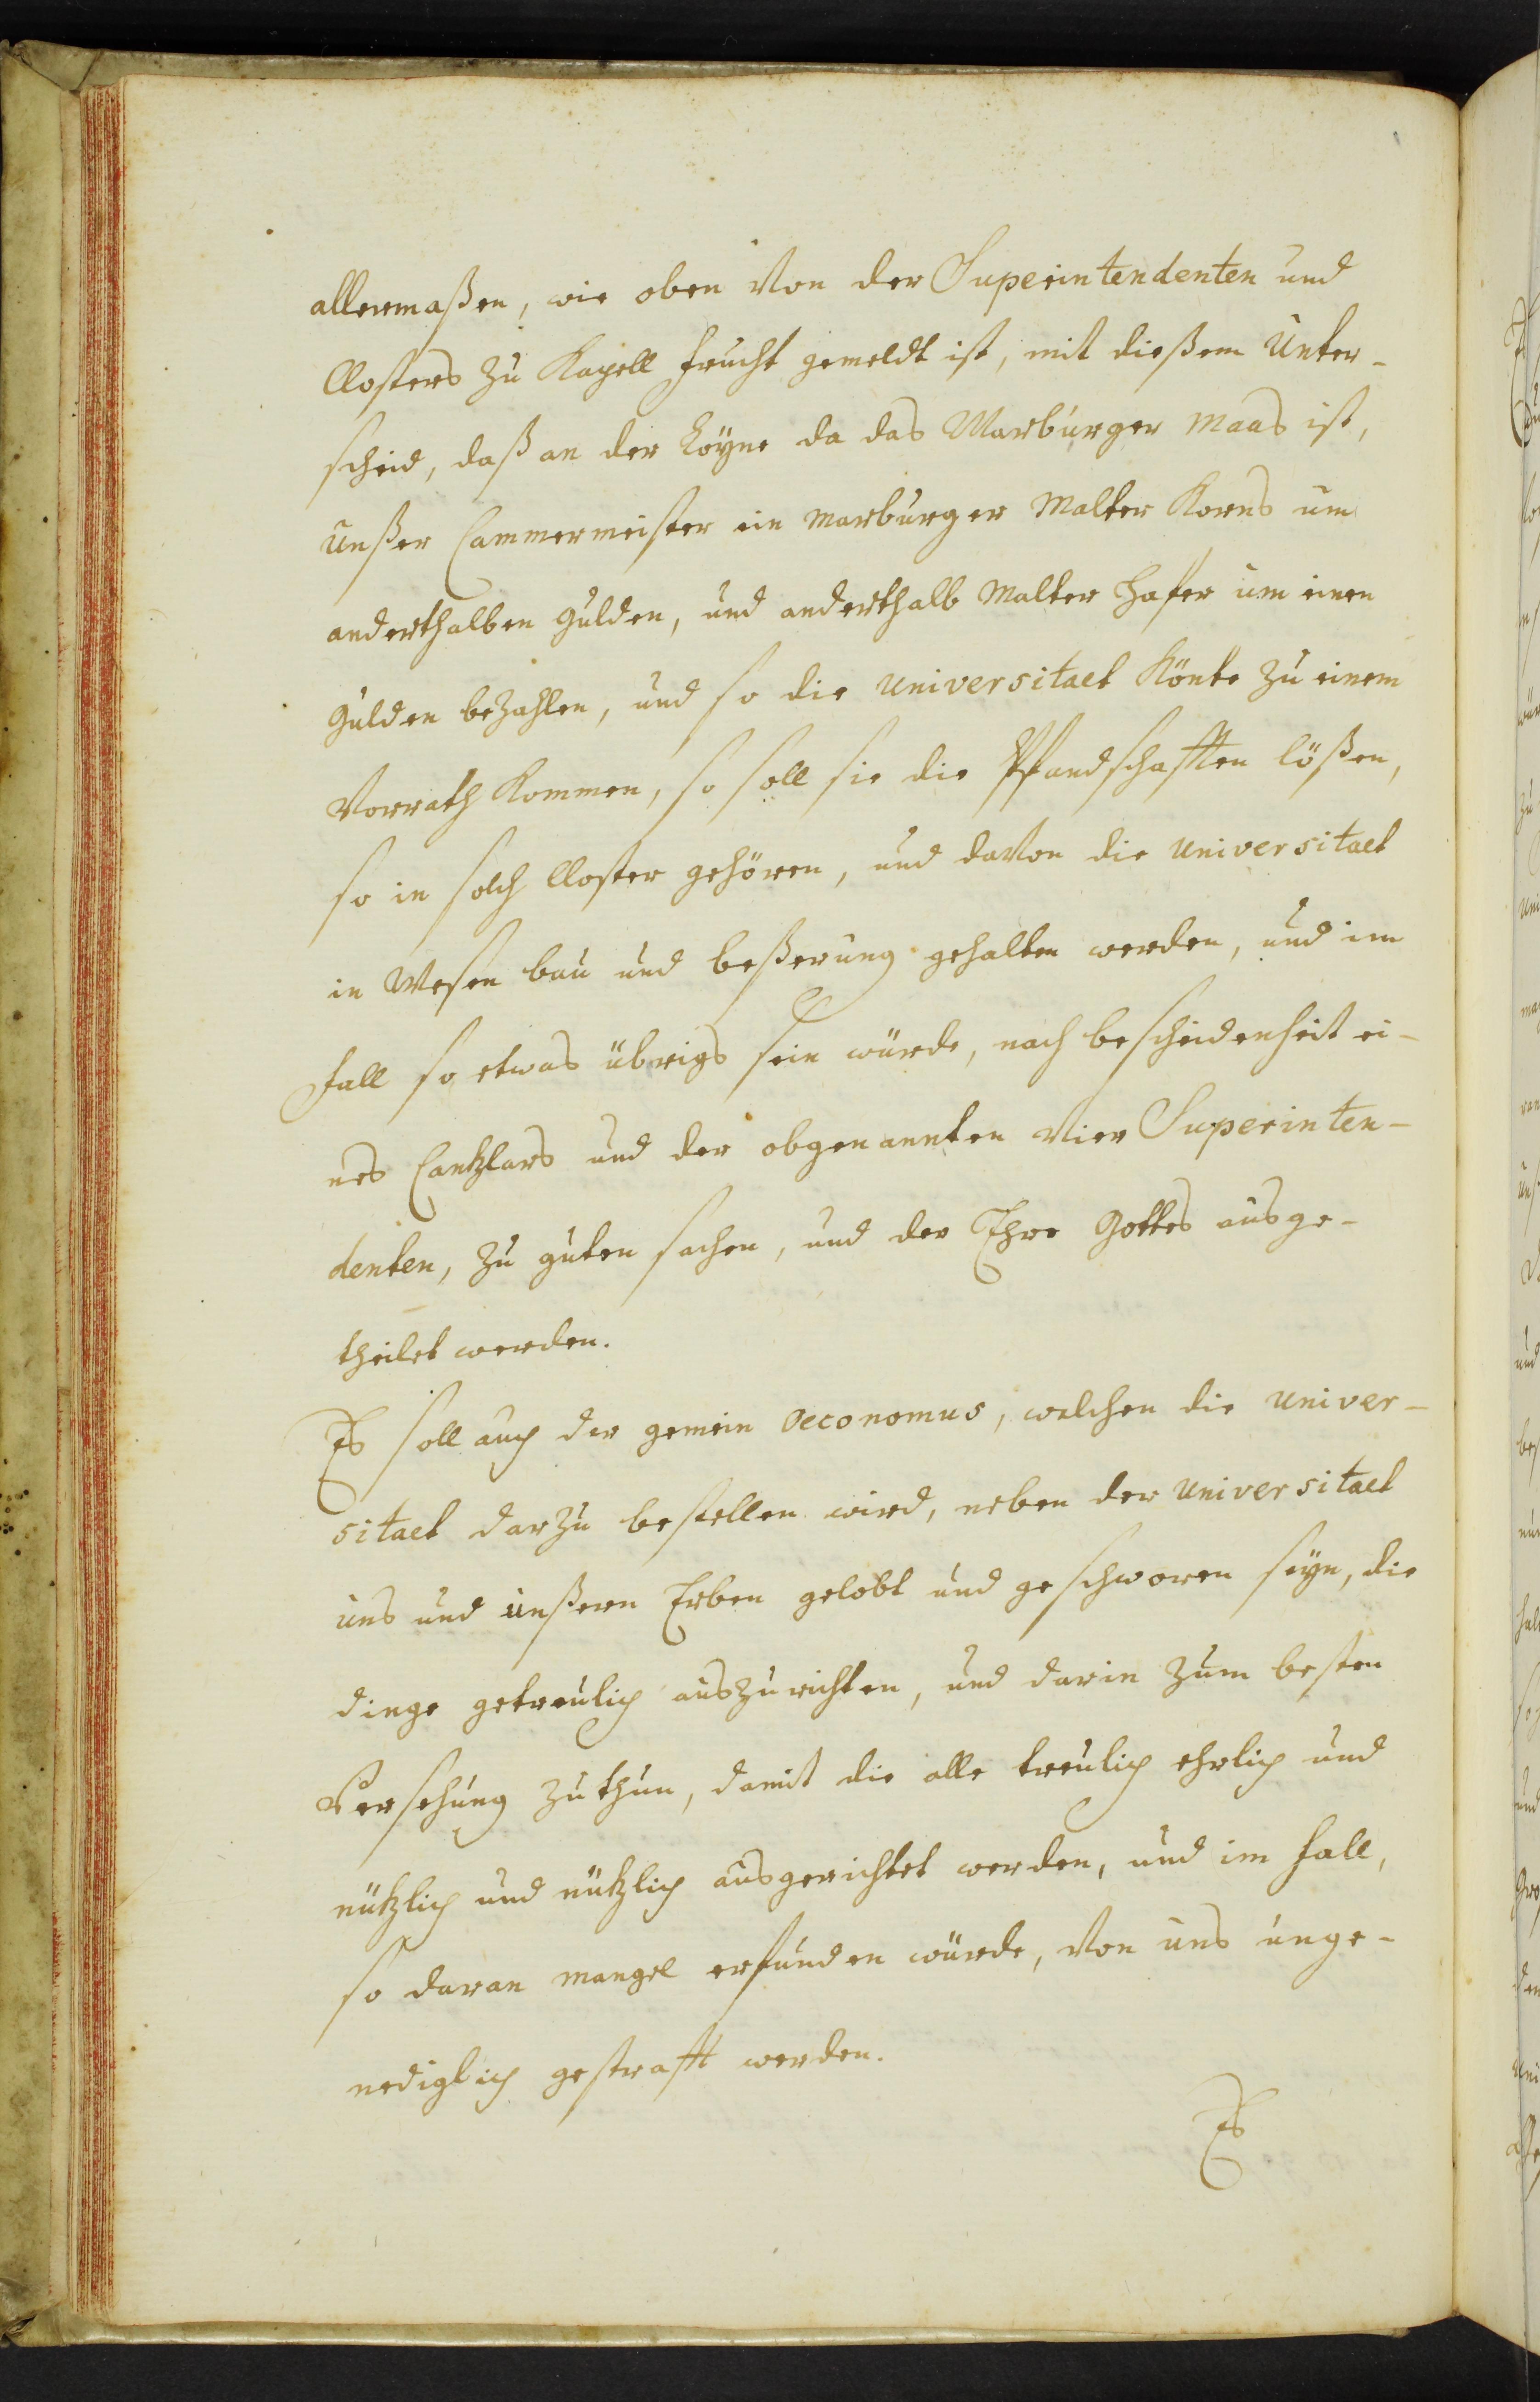 allermaßen, wie oben von der Superintendenten und
Closters zu Kapell frucht gemeldt ist, mit dießem Unter-
scheid, daß an der Löyne da das Marburger Maas ist,
unßer Cammermeister ein Marburger Malter Korns um
anderthalben Gulden, und anderthalb Malter Hafer um einen
Gulden bezahlen, und so die Universitaet Könte zu einem
Vorrath Kommen, so soll sie die Pfandschafften lößen,
so in solch Closter gehören, und davon die Universitaet
in Wesen bau und beßerung gehalten werden, und im
fall so etwas übrigs sein würde, nach bescheidenheit ei-
nes Cantzlars und der obgenannten Vier Superinten-
denten, zu guten sachen, und der Ehre Gottes ausge-
theilet werden.
Es soll auch der gemein Oeconomus, welchen die Univer-
sitaet darzu bestellen wird, neben der Universitaet
uns und unßern Erben gelobt und geschworen seyn, die
dinge getreulich auszurichten, und darin zum besten
Versehung zu thun, damit die alle treulich ehrlich und
nützlich und nützlich ausgerichtet werden, und im fall,
so daran mangel erfunden würde, von uns unge-
nediglich gestrafft werden.
Es